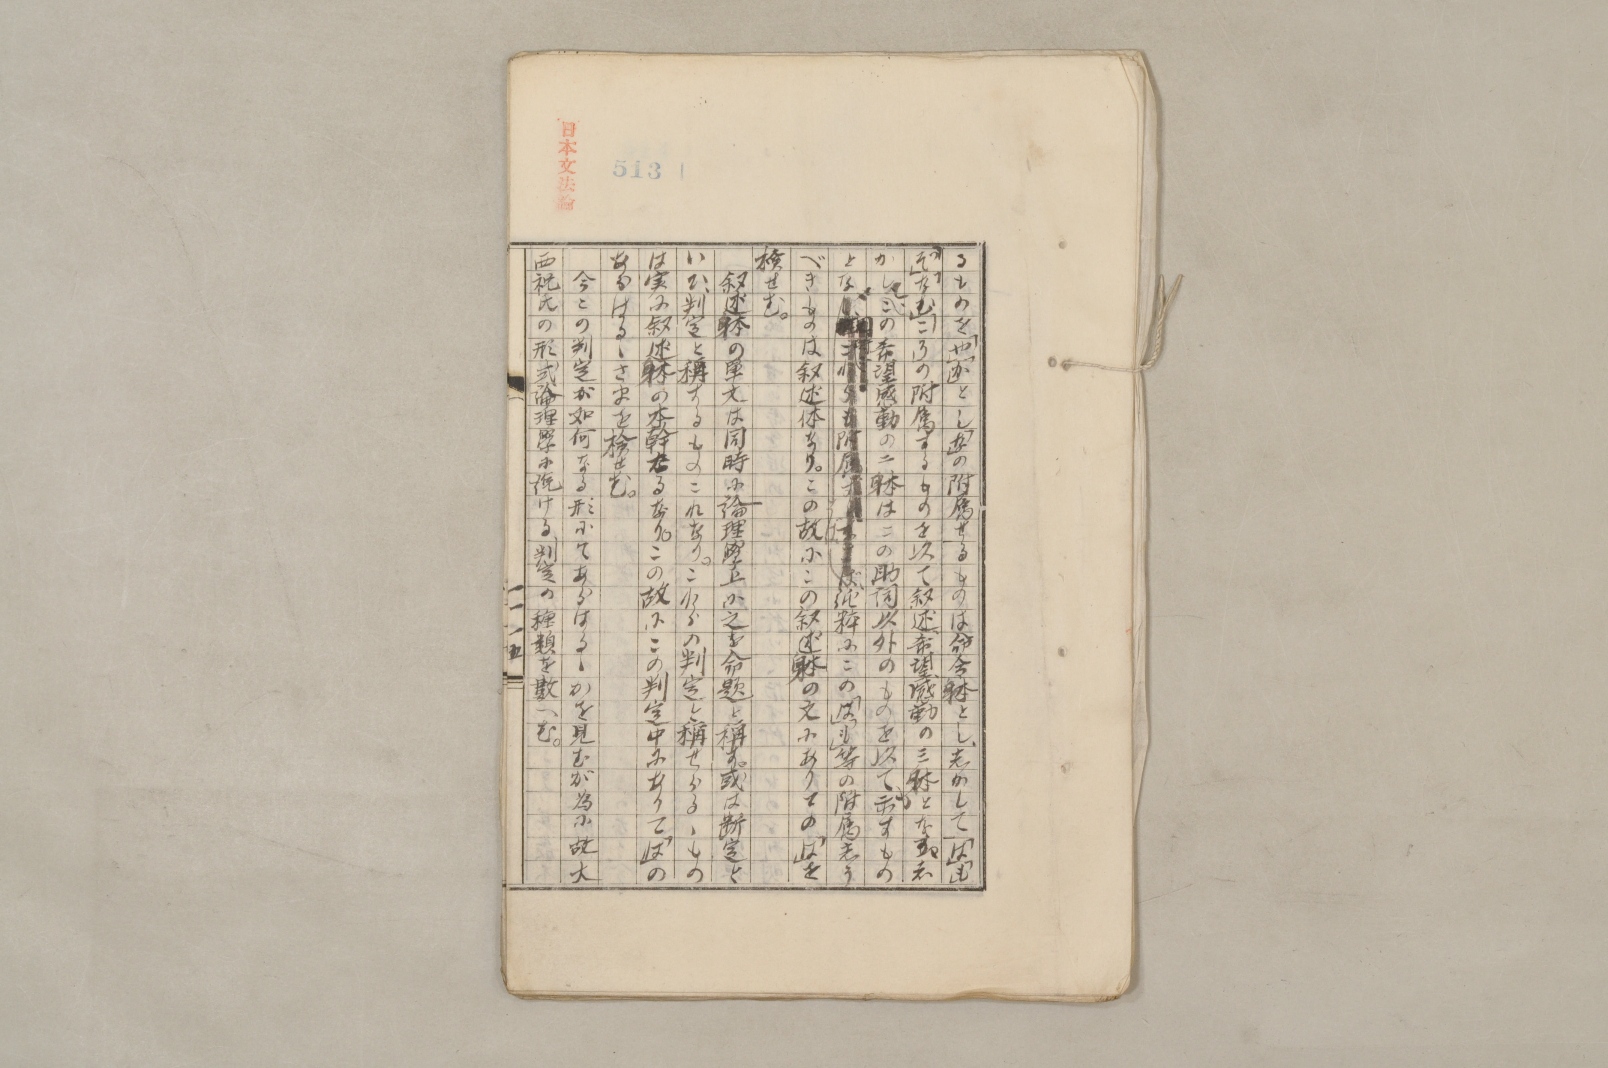 日本文法論
513
るものを「や」「か」とし「よ」の附属せるものは命令躰とし、志かして「は」「も」
「ぞ」「なむ」「こそ」の附属するものを以て叙述、希望、感動の三躰となす。志
かしこの希望感動の二躰はこの助詞以外のものを以て示すもの
となし
ば純粋にこの「は」「も」等の附属志う
べきものは叙述体なり。この故にこの叙述躰の文にありての「は」を
検せむ。
叙述躰の単文は同時に論理学上に之を命題と称す。或は断定と
いひ、判定と称するものこれあり。これらの判定と称せらるゝもの
は実に叙述躰の本幹たるなり。この故にこの判定中にありて「は」の
あらはるゝさまを検せむ。
今この判定が如何なる形にてあらはるゝかを見むが為に故大
西祝氏の形式論理学に説ける判定の種類を数へむ。
一一五